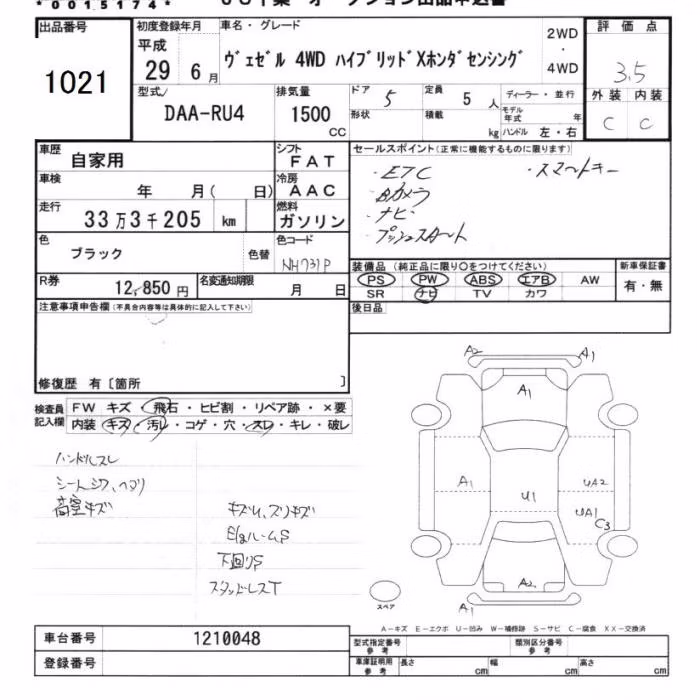 *0015174*
オークション出品申込書
出品番号
1021
初度登録年月
平成
29 年 6 月
車名・グレード
ヴェゼル 4WD ハイブリッドXホンダセンシング
2WD
・
4WD
評価点
3.5
外装 内装
C C
型式
DAA-RU4
排気量
1500
CC
ドア 5
形状
定員 5 人
積載 kg
ディーラー・並行
モデル年式 年
ハンドル 左・右
車歴
自家用
シフト
FAT
車検
年 月( 日)
冷房
AAC
走行
33万3千205 km
燃料
ガソリン
色
ブラック
色替
色コード
NH731P
R券
12,850円
名変通知期限
月 日
セールスポイント(正常に機能するものに限ります)
・ETC ・スマートキー
・Bカメラ
・ナビ
・プッシュスタート
装備品(純正品に限り○をつけてください)
PS PW ABS エアB AW
SR ナビ TV カワ
新車保証書
有・無
後日品
注意事項申告欄(不具合内容等は具体的に記入して下さい)
修復歴 有〔箇所 〕
検査員記入欄
FW キズ・飛石・ヒビ割・リペア跡・×要
内装 キズ・汚レ・コゲ・穴・スレ・キレ・破レ
ハンドルスレ
シートシワ、ヘタリ
荷室キズ
キズU、スリキズ
下回りS
スタッドレスT
A2 A1
A1
A1 U1 UA2
UA1
C3
A2
A1
スペア
A-キズ E-エクボ U-凹み W-補修跡 S-サビ C-腐食 XX-交換済
車台番号
1210048
登録番号
型式指定番号
参考
類別区分番号
参考
車庫証明用
参考
長さ cm
幅 cm
高さ cm